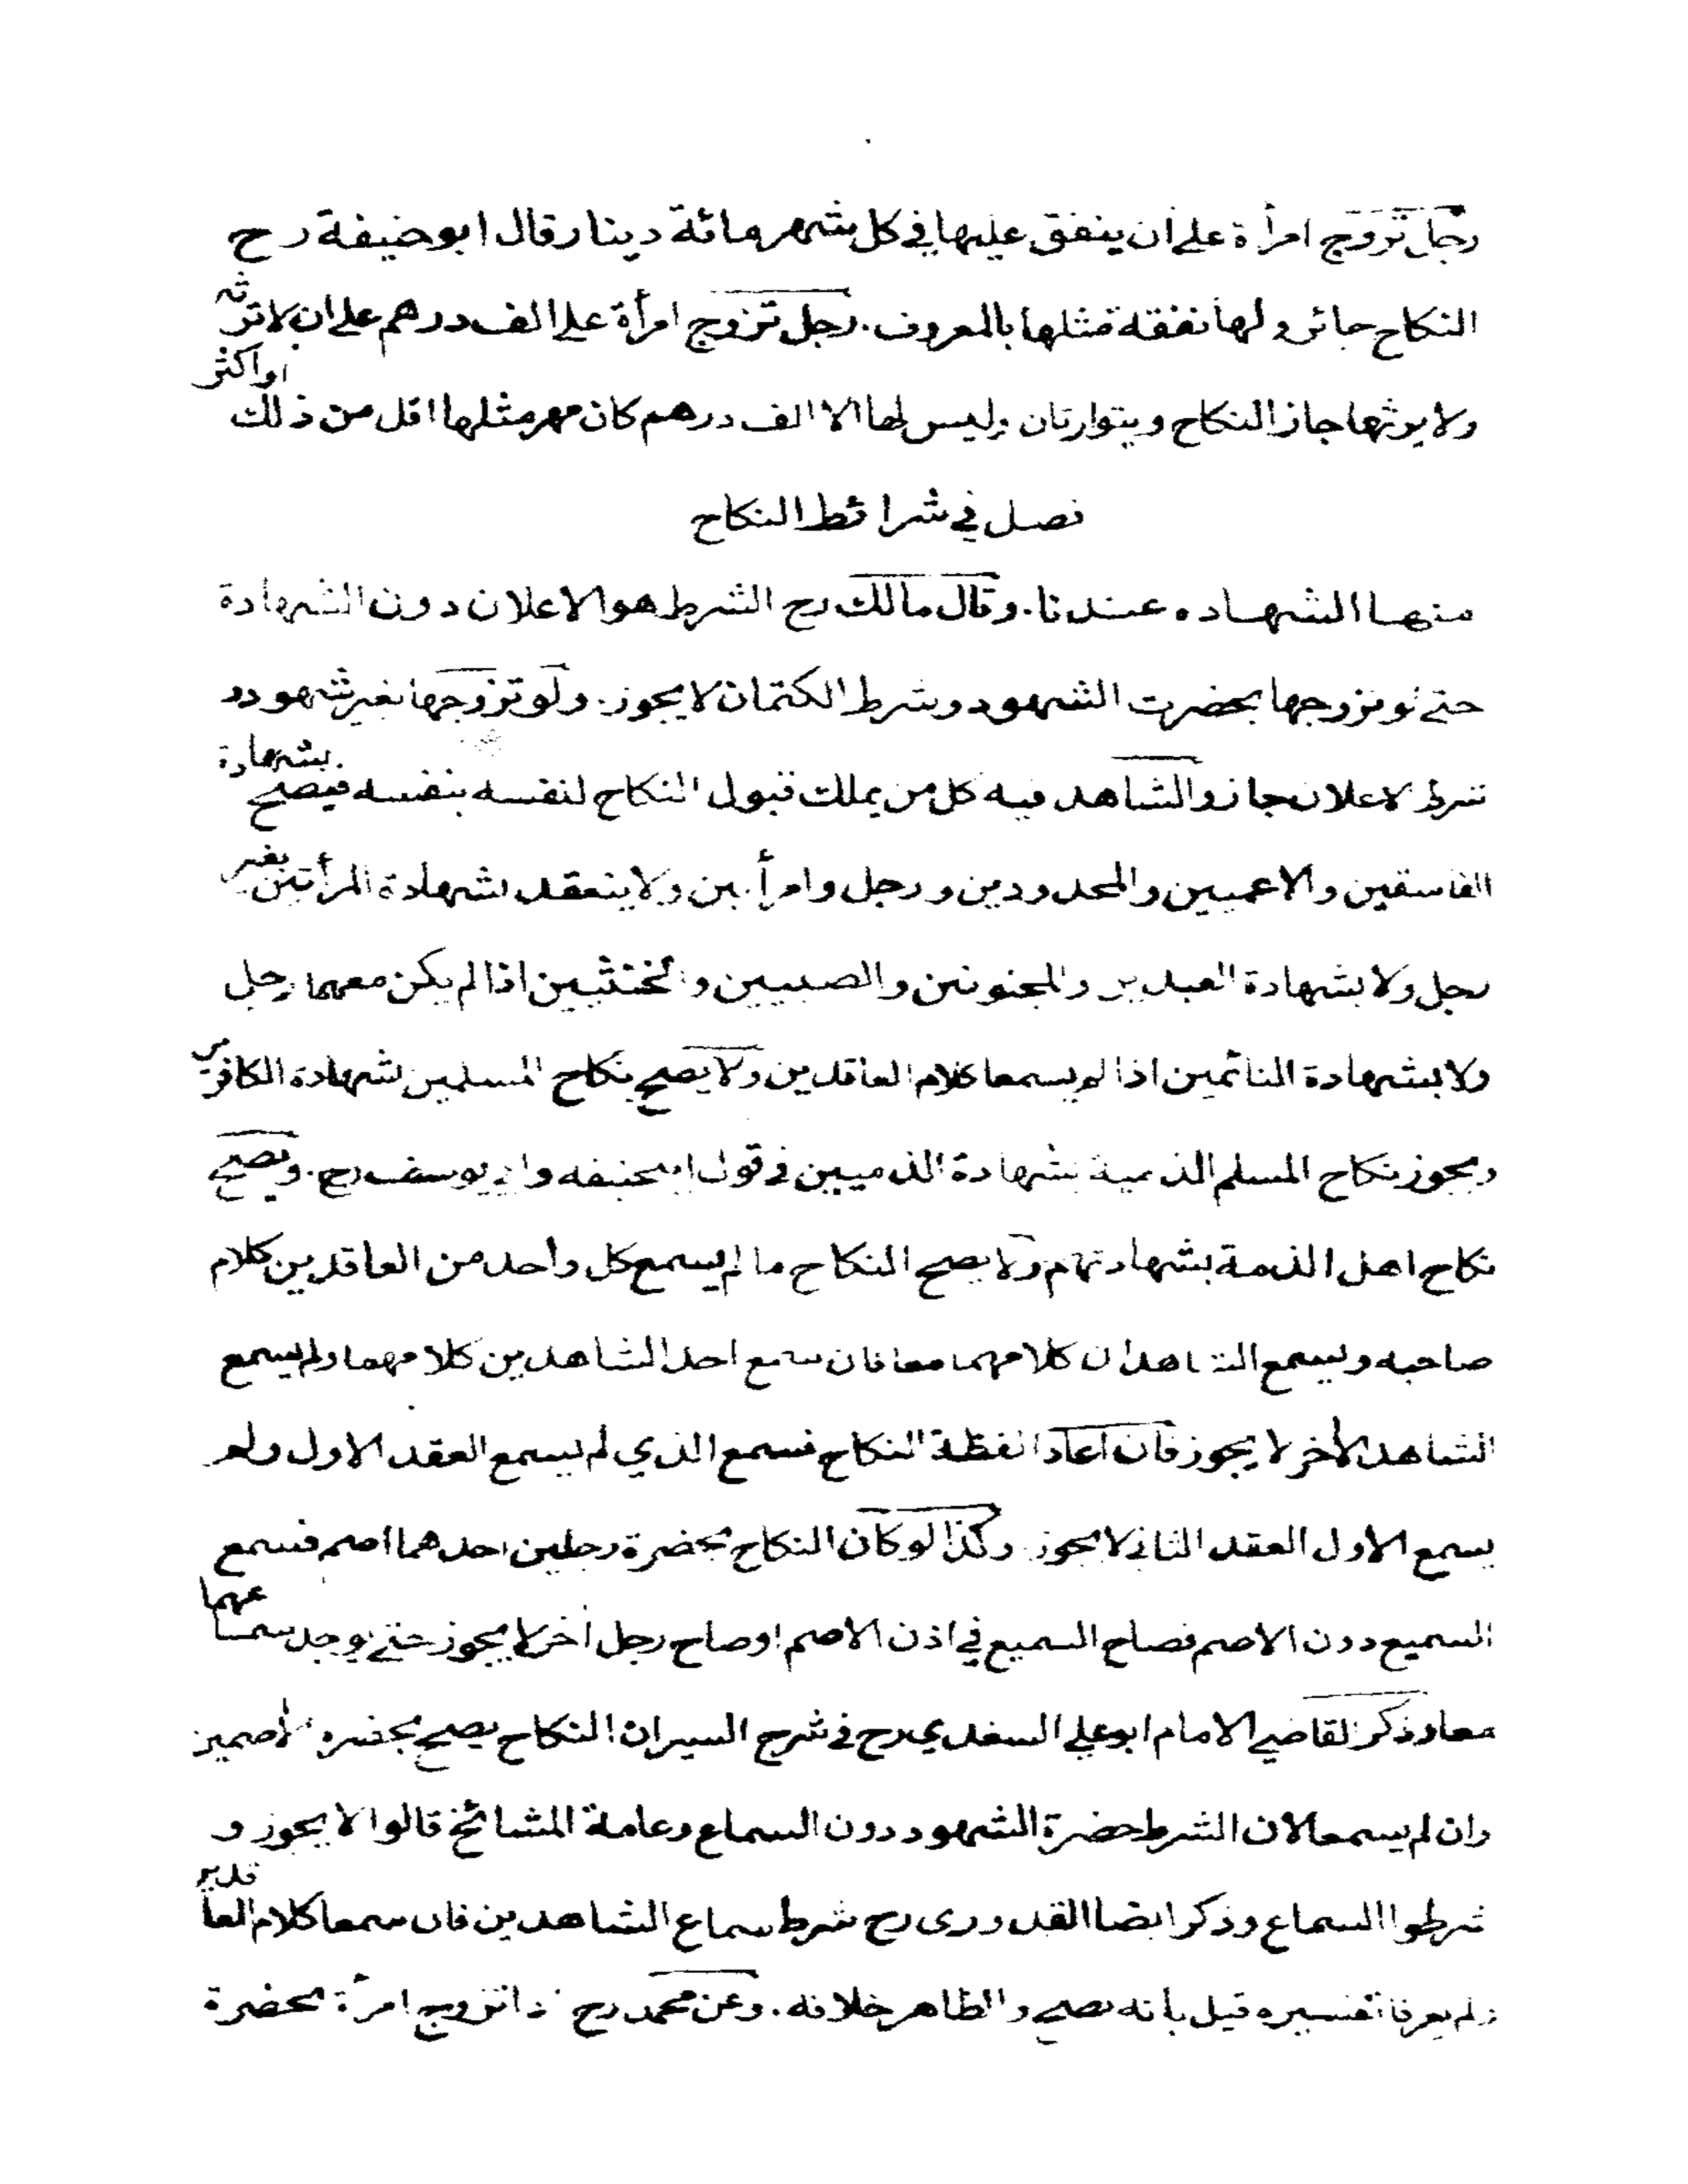 رجل تزوج امرأة على ان ينفق عليها في كل شهر مائة دينار قال ابو حنيفة رح
النكاح جائز ولها نفقة مثلها بالمعروف. رجل تزوج امرأة على الف درهم على ان لا ترثه
ولا يرثها جاز النكاح ويتوارثان وليس لها الا الف درهم كان مهر مثلها اقل من ذلك او اكثر
فصل في شرائط النكاح
منها الشهاده عندنا. وقال مالك رح الشرط هو الاعلان دون الشهادة
حتى لو تزوجها بحضرت الشهود وشرط الكتمان لا يجوز. ولو تزوجها بغير شهود و
شرط الاعلان جاز والشاهد فيه كل من يملك قبول النكاح لنفسه بنفسه فيصح بشهادة
الفاسقين والاعميين والمحدودين ورجل وامرأتين ولا ينعقد بشهادة المرأتين بغير
رجل ولا بشهادة العبدين والمجنونين والصبيين والخنثيين اذا لم يكن معهما رجل
ولا بشهادة النائمين اذا لم يسمعا كلام العاقدين ولا يصح نكاح المسلمين بشهادة الكافرين
ويجوز نكاح المسلم الذمية بشهادة الذميين في قول ابيحنيفه وابي يوسف رح. ويصح
نكاح اهل الذمة بشهادتهم ولا يصح النكاح ما لم يسمع كل واحد من العاقدين كلام
صاحبه ويسمع الشاهدان كلامهما معا فان سمع احد الشاهدين كلامهما ولم يسمع
الشاهد الأخر لا يجوز فان اعاد لفظة النكاح فسمع الذي لم يسمع العقد الاول ولم
يسمع الاول العقد الثاني لا يجوز وكذا لو كان النكاح بحضرة رجلين احدهما اصم فسمع
السميع دون الاصم فصاح السميع في اذن الاصم او صاح رجل أخر لا يجوز حتى يوجد سماعهما
معا وذكر القاضي الامام ابو علي السغدي رح في شرح السير ان النكاح يصح بحضره الأصمين
وان لم يسمعا لان الشرط حضرة الشهود دون السماع وعامة المشائخ قالوا لا يجوز و
شرطوا السماع وذكر ايضا القدوري رح شرط سماع الشاهدين فان سمعا كلام العاقدين
ولم يعرفا تفسيره قيل بانه يصح والظاهر خلافه. وعن محمد رح اذا تزوج امرأة بحضرة